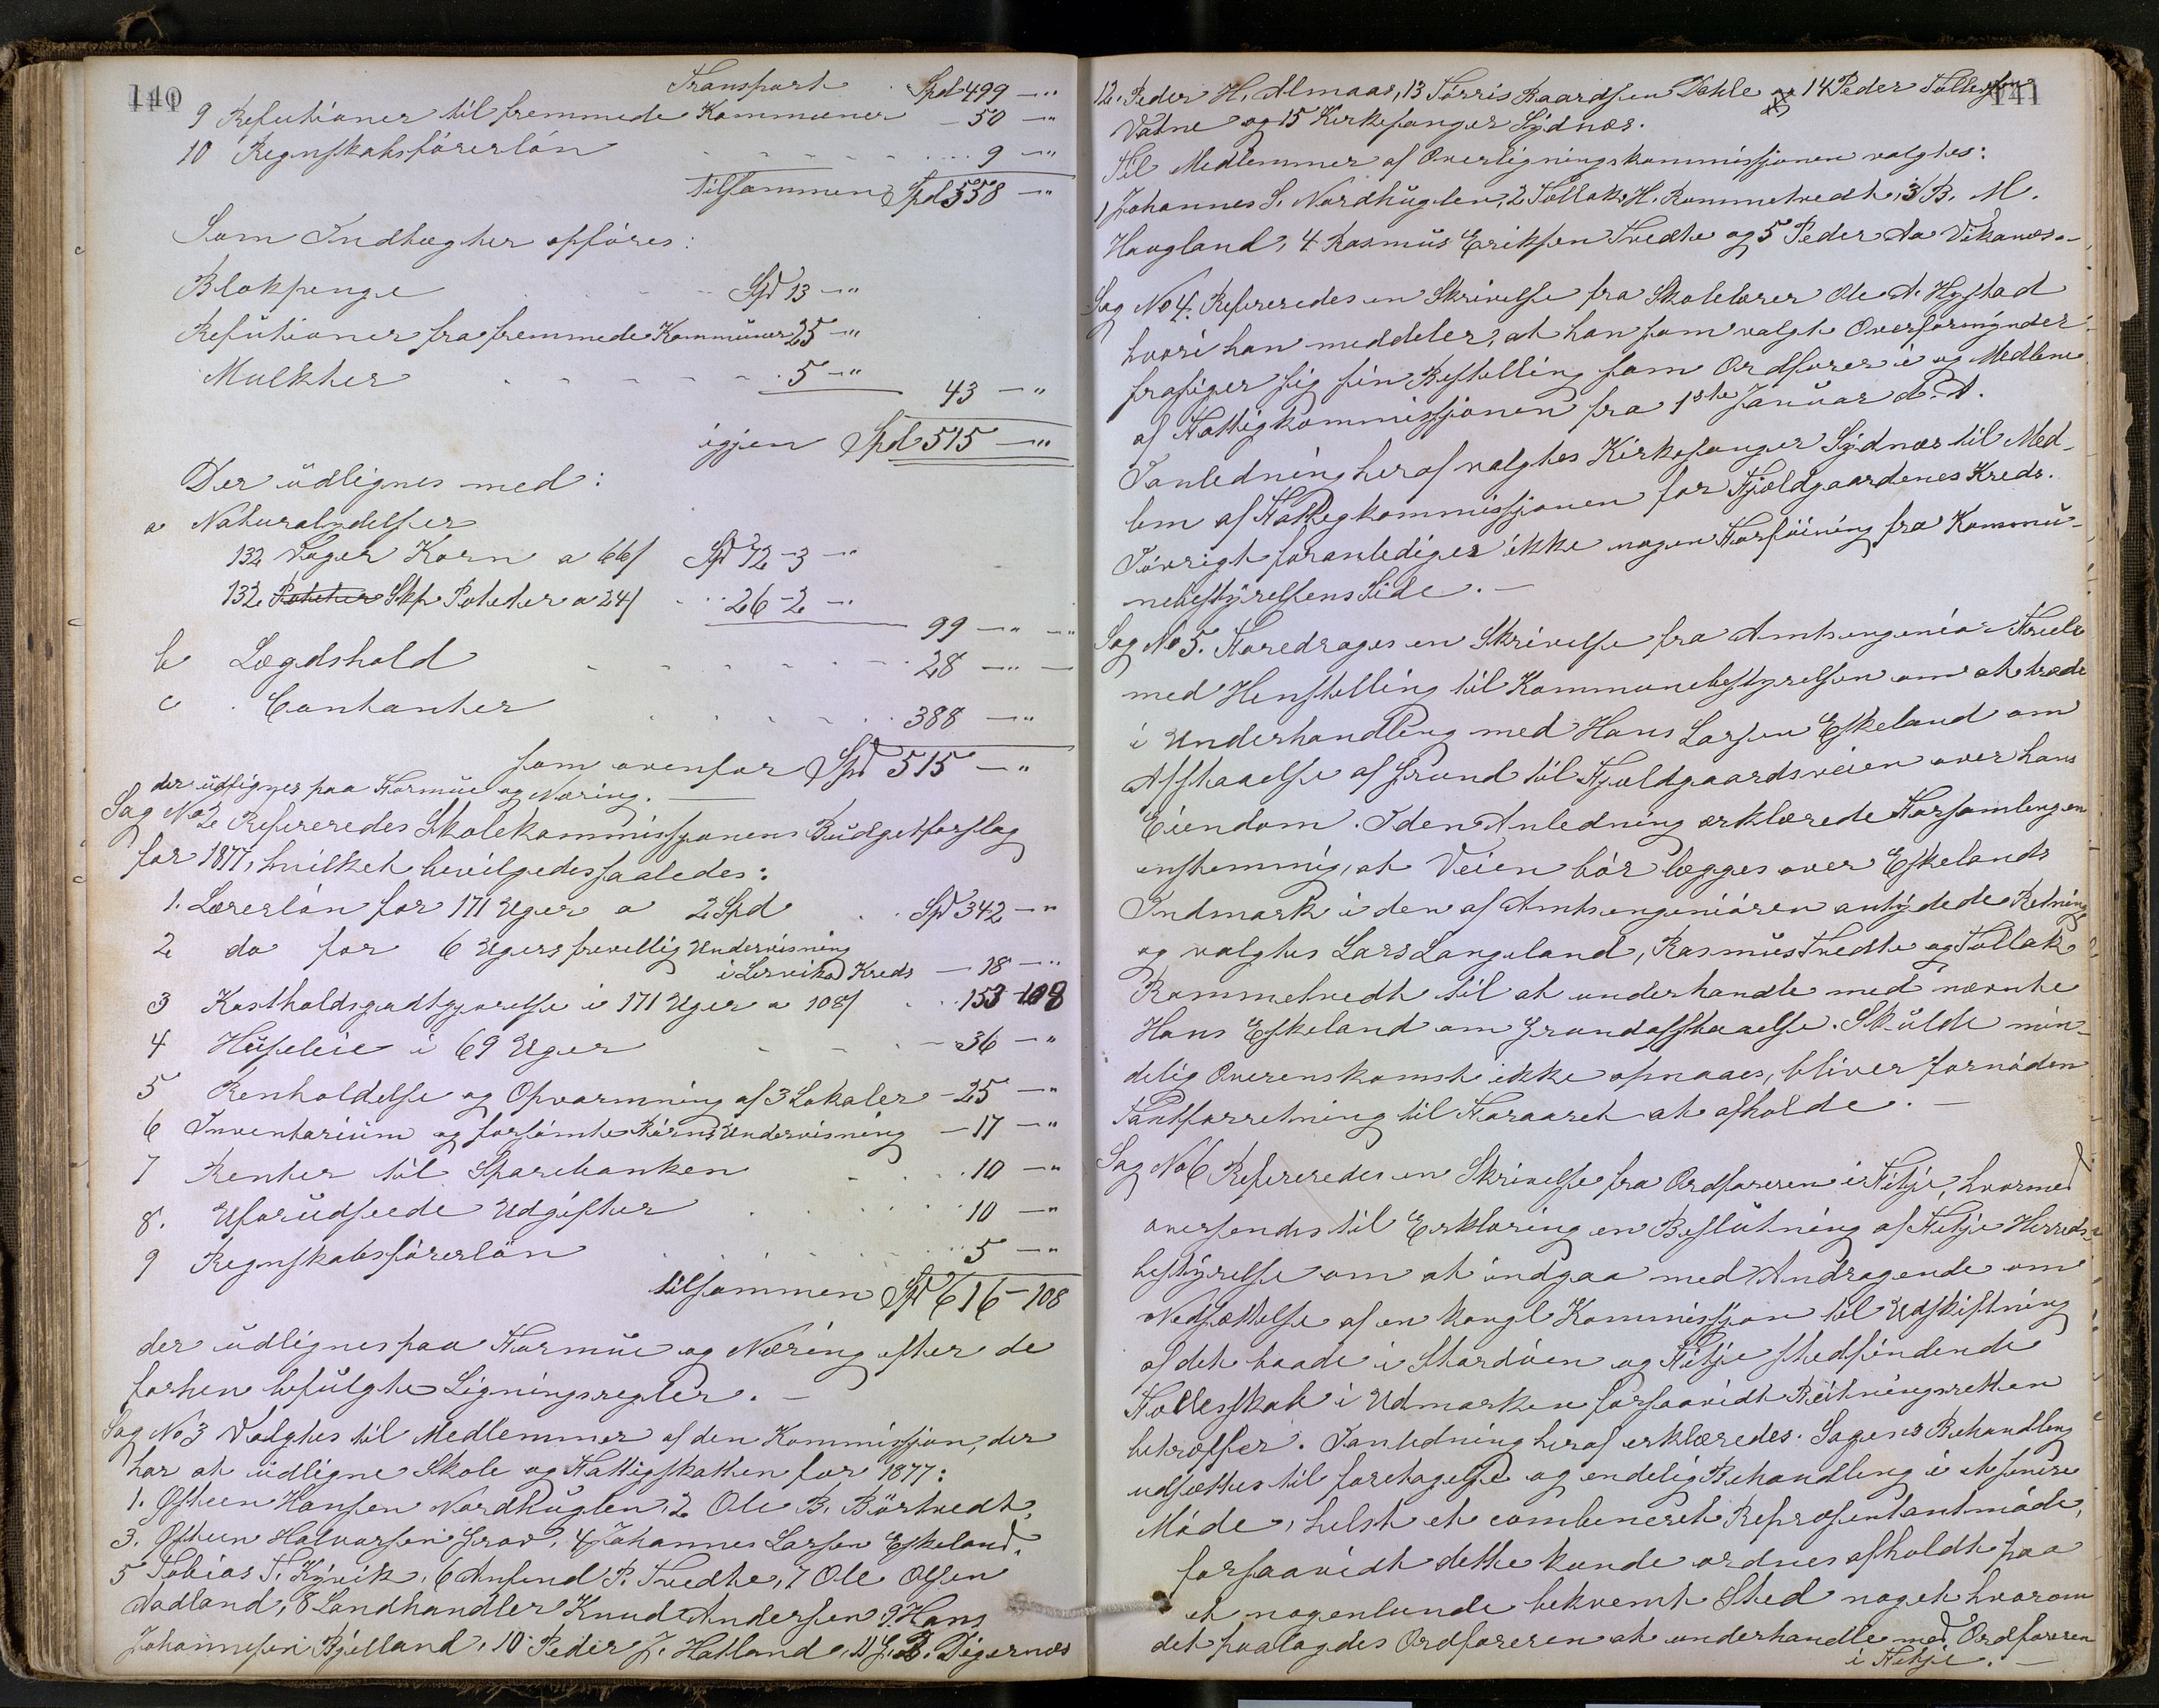 140
Transport Spd 499 — "
9 Refutioner til fremmede Kommuner — 50 — "
10 Regnskabsförerlön 9 — "
tilsammen Spd 558 — "
Som Indtægter opföres:
Blokpenge Spd 13 — "
Refutioner fra fremmede Kommuner 25 — "
Mulkter 5 — "
43 — "
igjen Spd 515 — "
Der udlignes med:
a Naturalydelser
132 Voger Korn a 66/ Spd 72 - 3 — "
132 Poteter Skp Poteter a 24/ 26 - 2 — "
99 — " — "
b Lægdshold 28 — " —
c Contanter 388 — "
som ovenfor Spd 515 — "
der udlignes paa Formue og Næring. —
Sag No 2 Refereredes Skolekommissjonens Budgetforslag
for 1877, hvilket bevilgedes saaledes:
1. Lærerlön for 171 Uger a 2 Spd Spd 342 — "
2 do for 6 Ugers frivillig Undervisning
i Lervik Kreds — 18 — "
3 Kostholdsgodtgjørelse i 171 Uger a 108/ 153 - 108
4 Husleie i 69 Uger 36 — "
5 Renholdelse og Opvarmning af 3 Lokaler - 25 — "
6 Inventarium og forsömte Börns Undervisning — 17 — "
7 Renter til Sparebanken 10 — "
8. Uforudseede Udgifter 10 — "
9 Regnskabsförerlön 5 — "
tilsammen Spd 616 - 108
der udlignes paa Formue og Næring efter de
forhen befulgte Ligningsregler. —
Sag No 3 Valgtes til Medlemmer af den Kommissjon, der
har at udligne Skole og Fattigskatten for 1877:
1. Østeen Hansen Nordhuglen, 2 Ole B. Börtvedt,
3. Østeen Halvorsen Grov, 4 Johannes Larsen Eskeland,
5 Tobias T. Kyvik, 6 Anfind P. Tvedte, 7 Ole Olsen
Aadland, 8 Landhandler Knud Andersen 9. Hans
Johannesen Bjelland, 10 Peder J. Hatland, 11 J. B. Digernæs
141
12. Peder H. Almaas, 13 Torris Baardsen Dahle og 14 Peder Tollefsen
Vatne og 15 Kirkesanger Sydnæs.
Til Medlemmer af Overligningskommissjonen valgtes:
1 Johannes S. Nordhuglen, 2 Tollak H. Rommetvedt, 3 B. M.
Hougland, 4 Rasmus Eriksen Tvedte og 5 Peder Aa Vikanæs. —
Sag No 4. Refereredes en Skrivelse fra Skolelærer Ole A. Hystad
hvori han meddeler, at han som valgt Overformynder
frasiger sig sin Bestilling som Ordforer i og Medlem
af Fattigkommissjonen fra 1ste Januar d. A.
I anledning heraf valgtes Kirkesanger Sydnæs til Med-
lem af Fattigkommissjonen for Fjeldgaardenes Kreds.
I övrigt foranlediges ikke nogen Forföining fra Kommu-
nebestyrelsens Side. —
Sag No 5. Foredroges en Skrivelse fra Amtsengeniör Friele
med Henstilling til Kommunebestyrelsen om at træde
i Underhandling med Hans Larsen Eskeland om
Afstaaelse af Grund til Fjeldgaardsveien over hans
Eiendom. I den Anledning ærklærede Forsamlingen
enstemmig, at Veien bör lægges over Eskelands
Indmark i den af Amtsengeniören antydede Retning
og valgtes Lars Langeland, Rasmus Tvedte og Tollak
Rommetvedt til at underhandle med nævnte
Hans Eskeland om Grundafstaaelse. Skulde min-
delig Overenskomst ikke opnaaes, bliver fornöden
Taxtforretning til Foraaret at afholde. —
Sag No 6 Refereredes en Skrivelse fra Ordforeren i Fitje, hvormed
oversendes til Erklæring en Beslutning af Fitje Herreds-
bestyrelse om at indgaa med Andragende om
Nedsættelse af en kongl Kommissjon til Udskiftning
af det baade i Stordöen og Fitje stedfindende
Fællesskab i Udmarken forsaavidt Beitningsretten
betræffer. I anledning heraf erklæredes: Sagens Behandling
udsættes til foretagelse og endelig Behandling i et senere
Möde, helst et combineret Repræsentantmöde,
forsaavidt dette kunde ordnes afholdt paa
et nogenlunde bekvemt Sted noget hvorom
det paalagdes Ordforeren at underhandle med Ordforeren
i Fitje. —